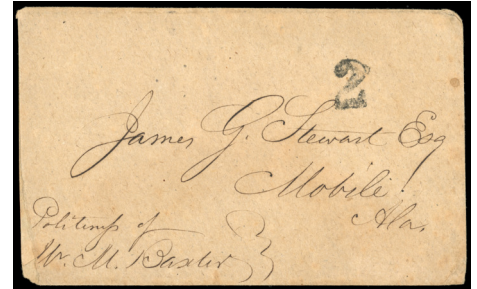 2
James G. Stewart Esq
Mobile
Ala.
Politeness of
Wm. M. Baxter